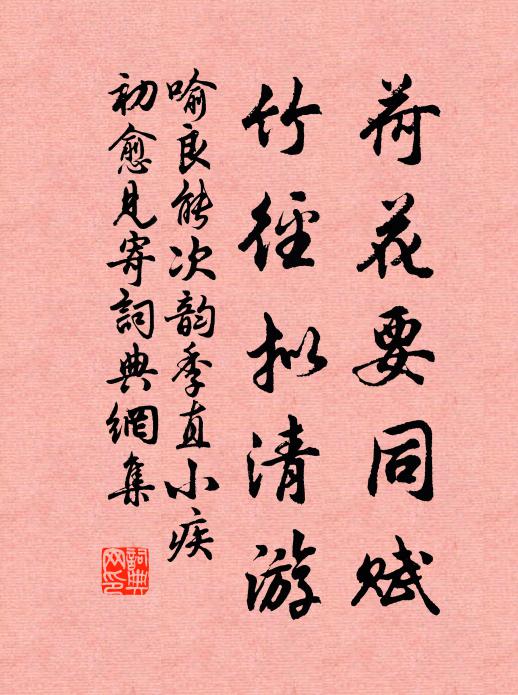 荷花要同赋
竹径拟清游
喻良能次韵季直小疾
初愈见寄詞典網集
詞典网印